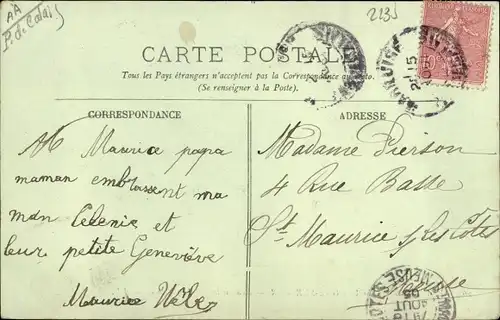 AA
P. de Calais
2135
CARTE POSTALE
Tous les Pays étrangers n'acceptent pas la Correspondance au recto.
(Se renseigner à la Poste).
CORRESPONDANCE
Maurice papa
maman embrassent ma
man Celenie et
leur petite Geneviève
Maurice
ADRESSE
Madame Pierson
4 Rue Basse
St Maurice s/ les Côtes
Meuse
MARQUISE
MEUSE
AOUT
05